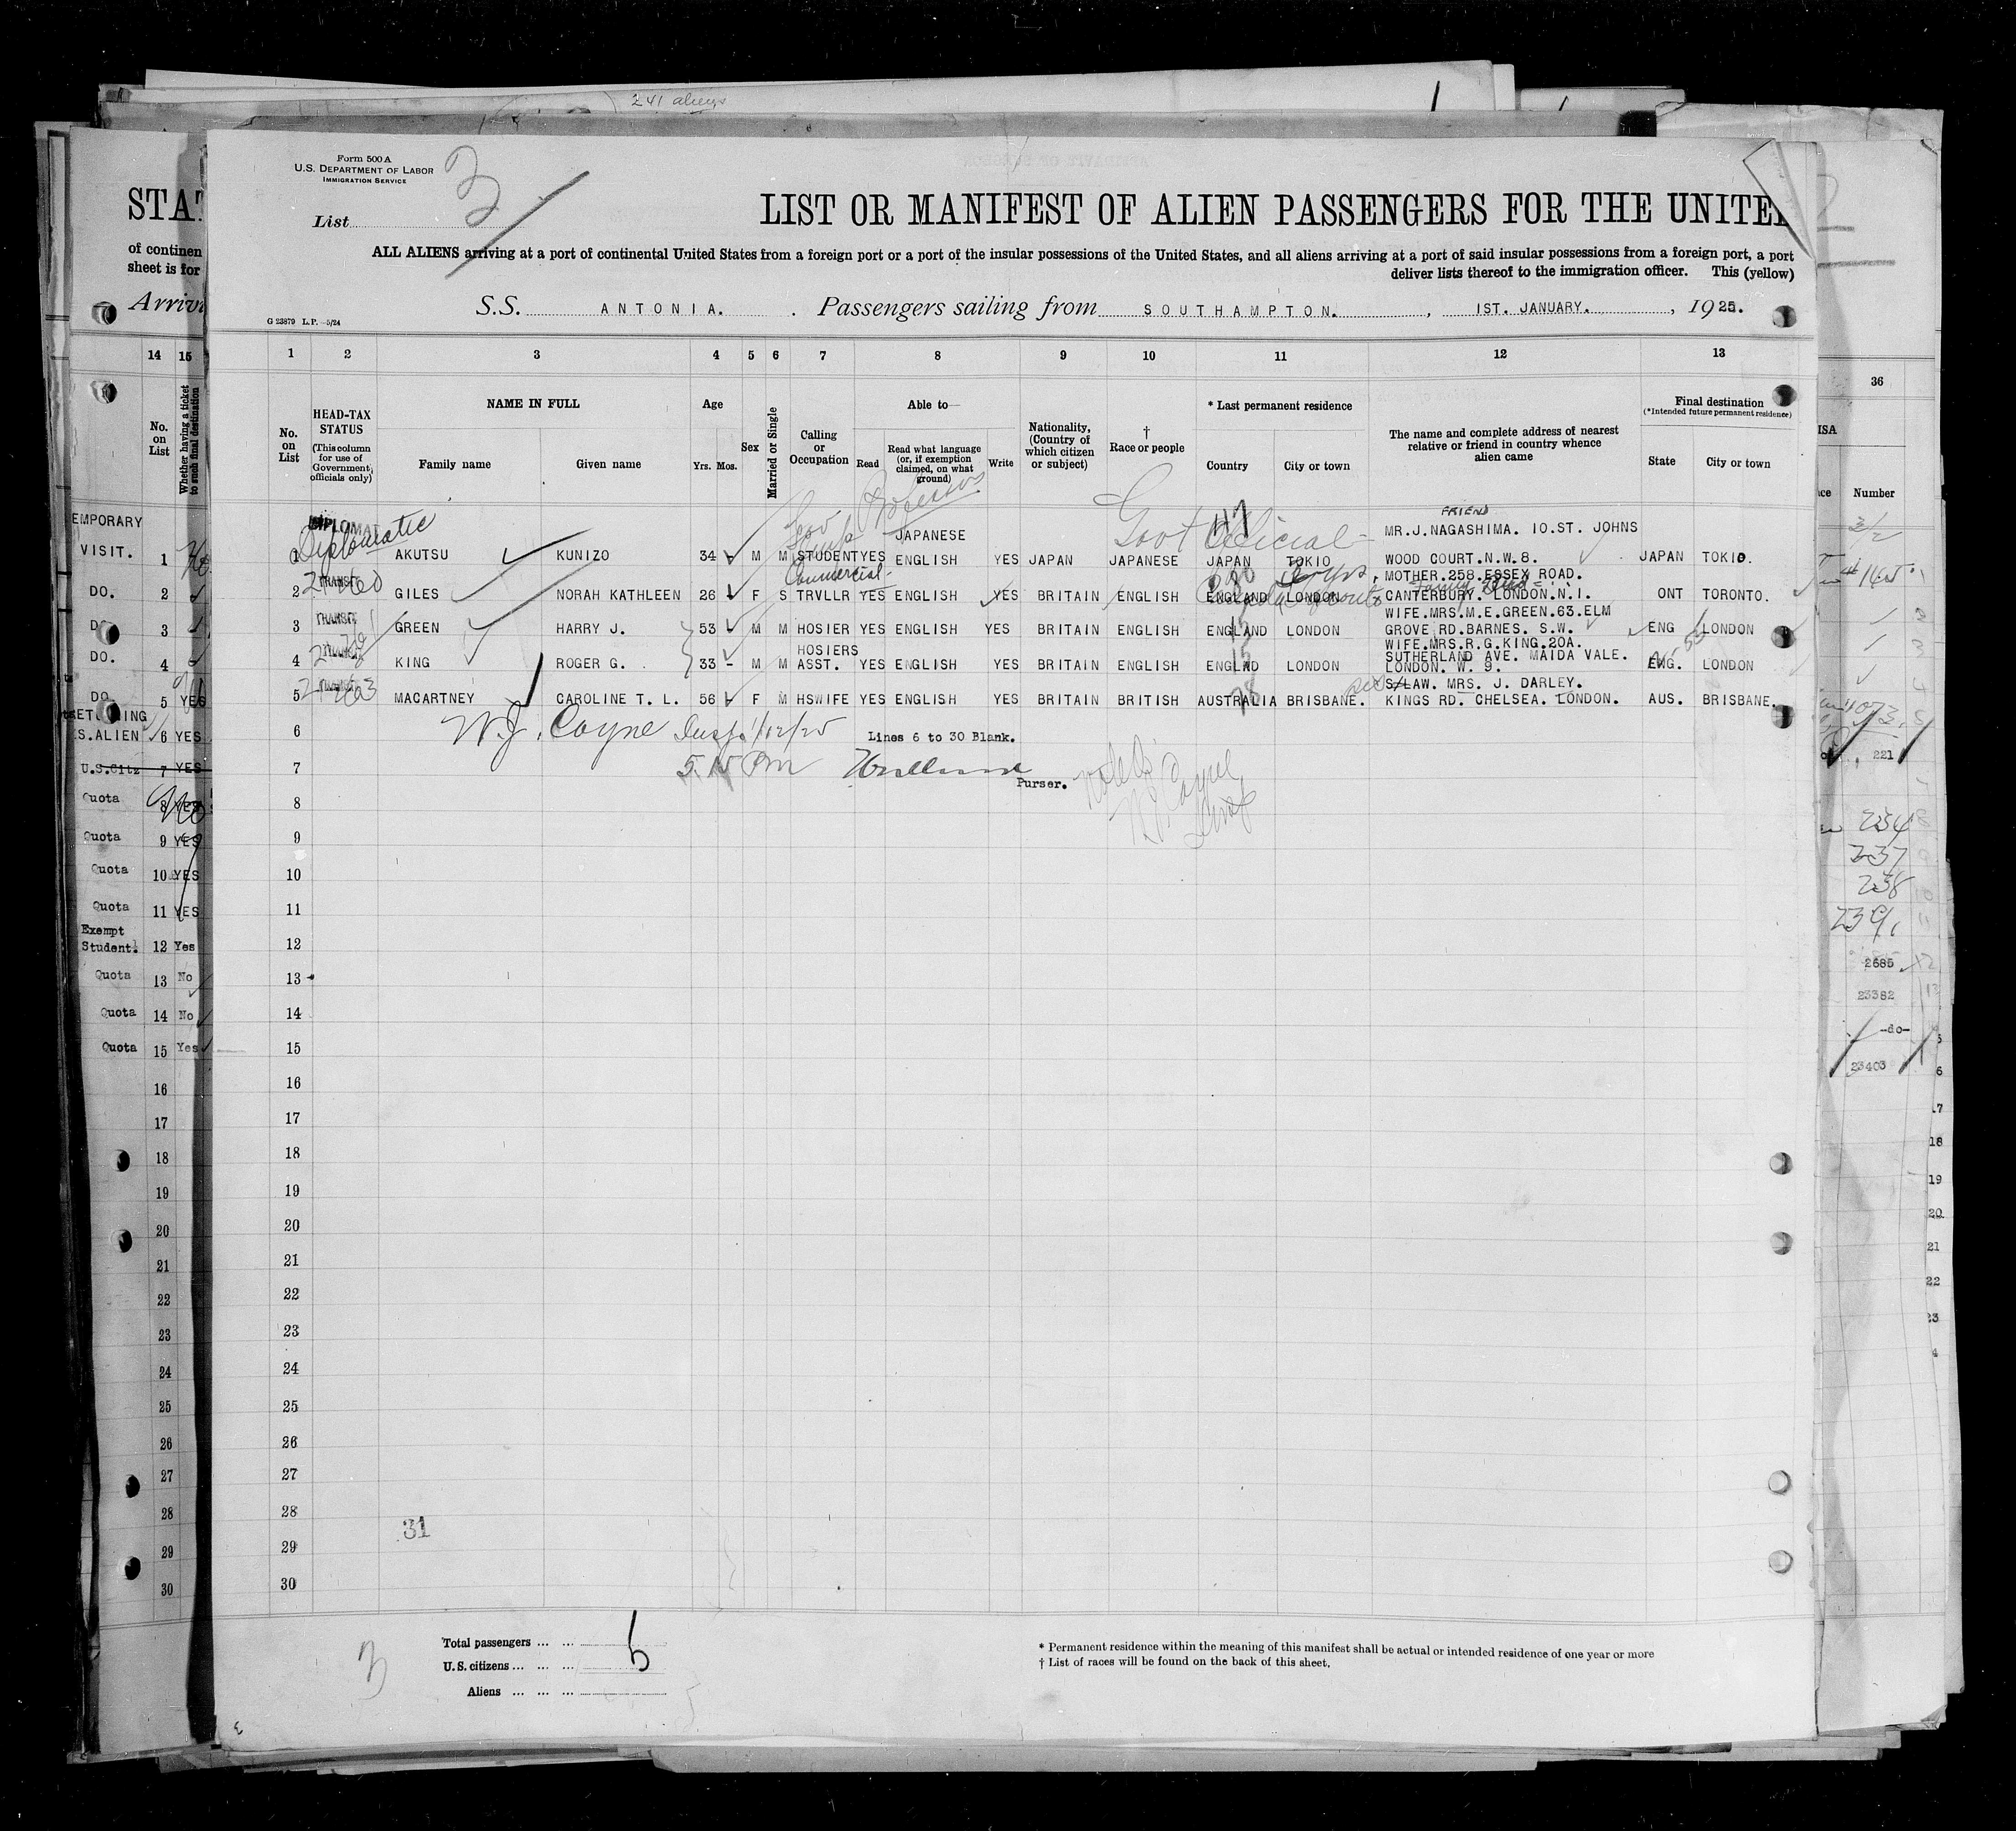 241 aliens
Form 500 A
U.S. DEPARTMENT OF LABOR
IMMIGRATION SERVICE
List 3
LIST OR MANIFEST OF ALIEN PASSENGERS FOR THE UNITED
ALL ALIENS arriving at a port of continental United States from a foreign port or a port of the insular possessions of the United States, and all aliens arriving at a port of said insular possessions from a foreign port, a port
deliver lists thereof to the immigration officer. This (yellow)
S.S. ANTONIA. . Passengers sailing from SOUTHAMPTON. , 1ST. JANUARY. , 1925.
G 23879 L.P. -5/24
1 2 3 4 5 6 7 8 9 10 11 12 13
No. on List
HEAD-TAX STATUS
(This column for use of Government officials only)
NAME IN FULL
Family name Given name
Age
Yrs. Mos.
Sex
Married or Single
Calling or Occupation
Able to—
Read
Read what language (or, if exemption claimed, on what ground)
Write
Nationality, (Country of which citizen or subject)
† Race or people
* Last permanent residence
Country City or town
The name and complete address of nearest relative or friend in country whence alien came
Final destination
(*Intended future permanent residence)
State City or town
Professor
Govt Official
Diplomatic
FRIEND
1 AKUTSU KUNIZO 34 M M STUDENT YES JAPANESE ENGLISH YES JAPAN JAPANESE JAPAN TOKIO MR.J.NAGASHIMA. 10.ST. JOHNS WOOD COURT.N.W.8. JAPAN TOKIO.
Commercial
TRANSIT
2 GILES NORAH KATHLEEN 26 F S TRVLLR YES ENGLISH YES BRITAIN ENGLISH ENGLAND LONDON MOTHER.258.ESSEX ROAD. CANTERBURY. LONDON.N.I. ONT TORONTO.
TRANSIT
3 GREEN HARRY J. 53 M M HOSIER YES ENGLISH YES BRITAIN ENGLISH ENGLAND LONDON WIFE.MRS.M.E.GREEN.63.ELM GROVE RD.BARNES. S.W. ENG LONDON
4 KING ROGER G. 33 M M HOSIERS ASST. YES ENGLISH YES BRITAIN ENGLISH ENGLND LONDON WIFE.MRS.R.G.KING.20A. SUTHERLAND AVE. MAIDA VALE. LONDON. W. 9. ENG. LONDON
5 MACARTNEY CAROLINE T. L. 56 F M HSWIFE YES ENGLISH YES BRITAIN BRITISH AUSTRALIA BRISBANE. S/LAW. MRS. J. DARLEY. KINGS RD. CHELSEA. LONDON. AUS. BRISBANE.
6 W.J. Coyne Insp. 1/12/25 Lines 6 to 30 Blank.
7 5.15 Pm
Purser.
8
9
10
11
12
13
14
15
16
17
18
19
20
21
22
23
24
25
26
27
28
31
29
30
Total passengers ... ...
U.S. citizens ... ... ...
Aliens ... ... ...
5
3
* Permanent residence within the meaning of this manifest shall be actual or intended residence of one year or more
† List of races will be found on the back of this sheet.
STAT
of continen
sheet is for
14 15
No. on List
Whether having a ticket to such final destination
EMPORARY
VISIT. 1 No
DO. 2
DO. 3
DO. 4
DO. 5 YES
S.ALIEN 6 YES
U.S.Citz 7 YES
Quota 8 YES
Quota 9 YES
Quota 10 YES
Quota 11 YES
Exempt
Student. 12 Yes
Quota 13 No
Quota 14 No
Quota 15 Yes
16
17
18
19
20
21
22
23
24
25
26
27
28
29
30
36
ISA
Number
221
234
237
238
239
2685
23382
-do-
23403